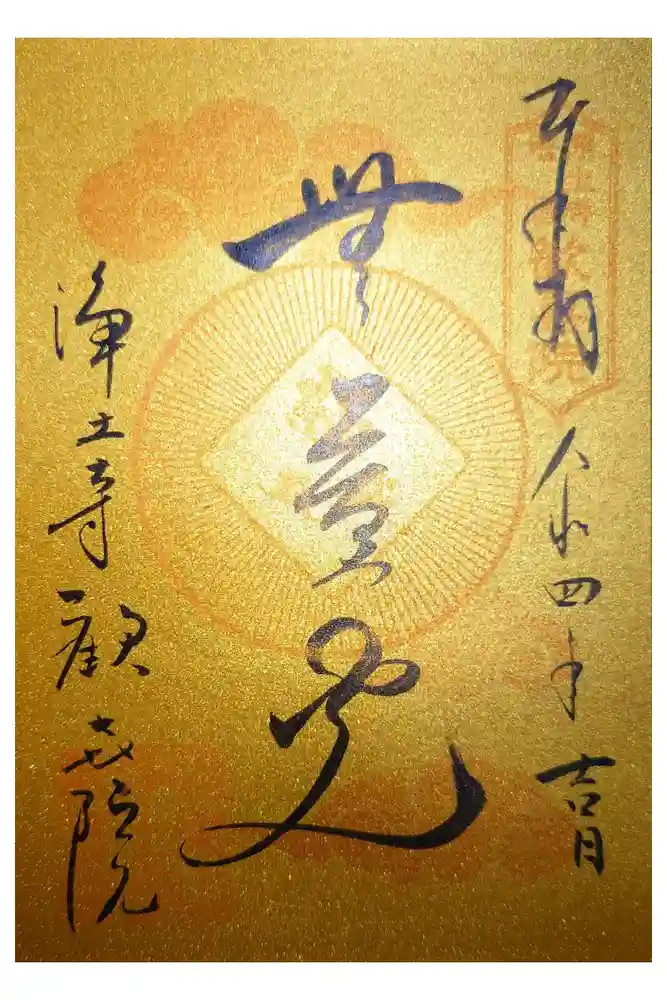 奉拝 令和四年 吉月
無量覚
浄土寺 歓喜院